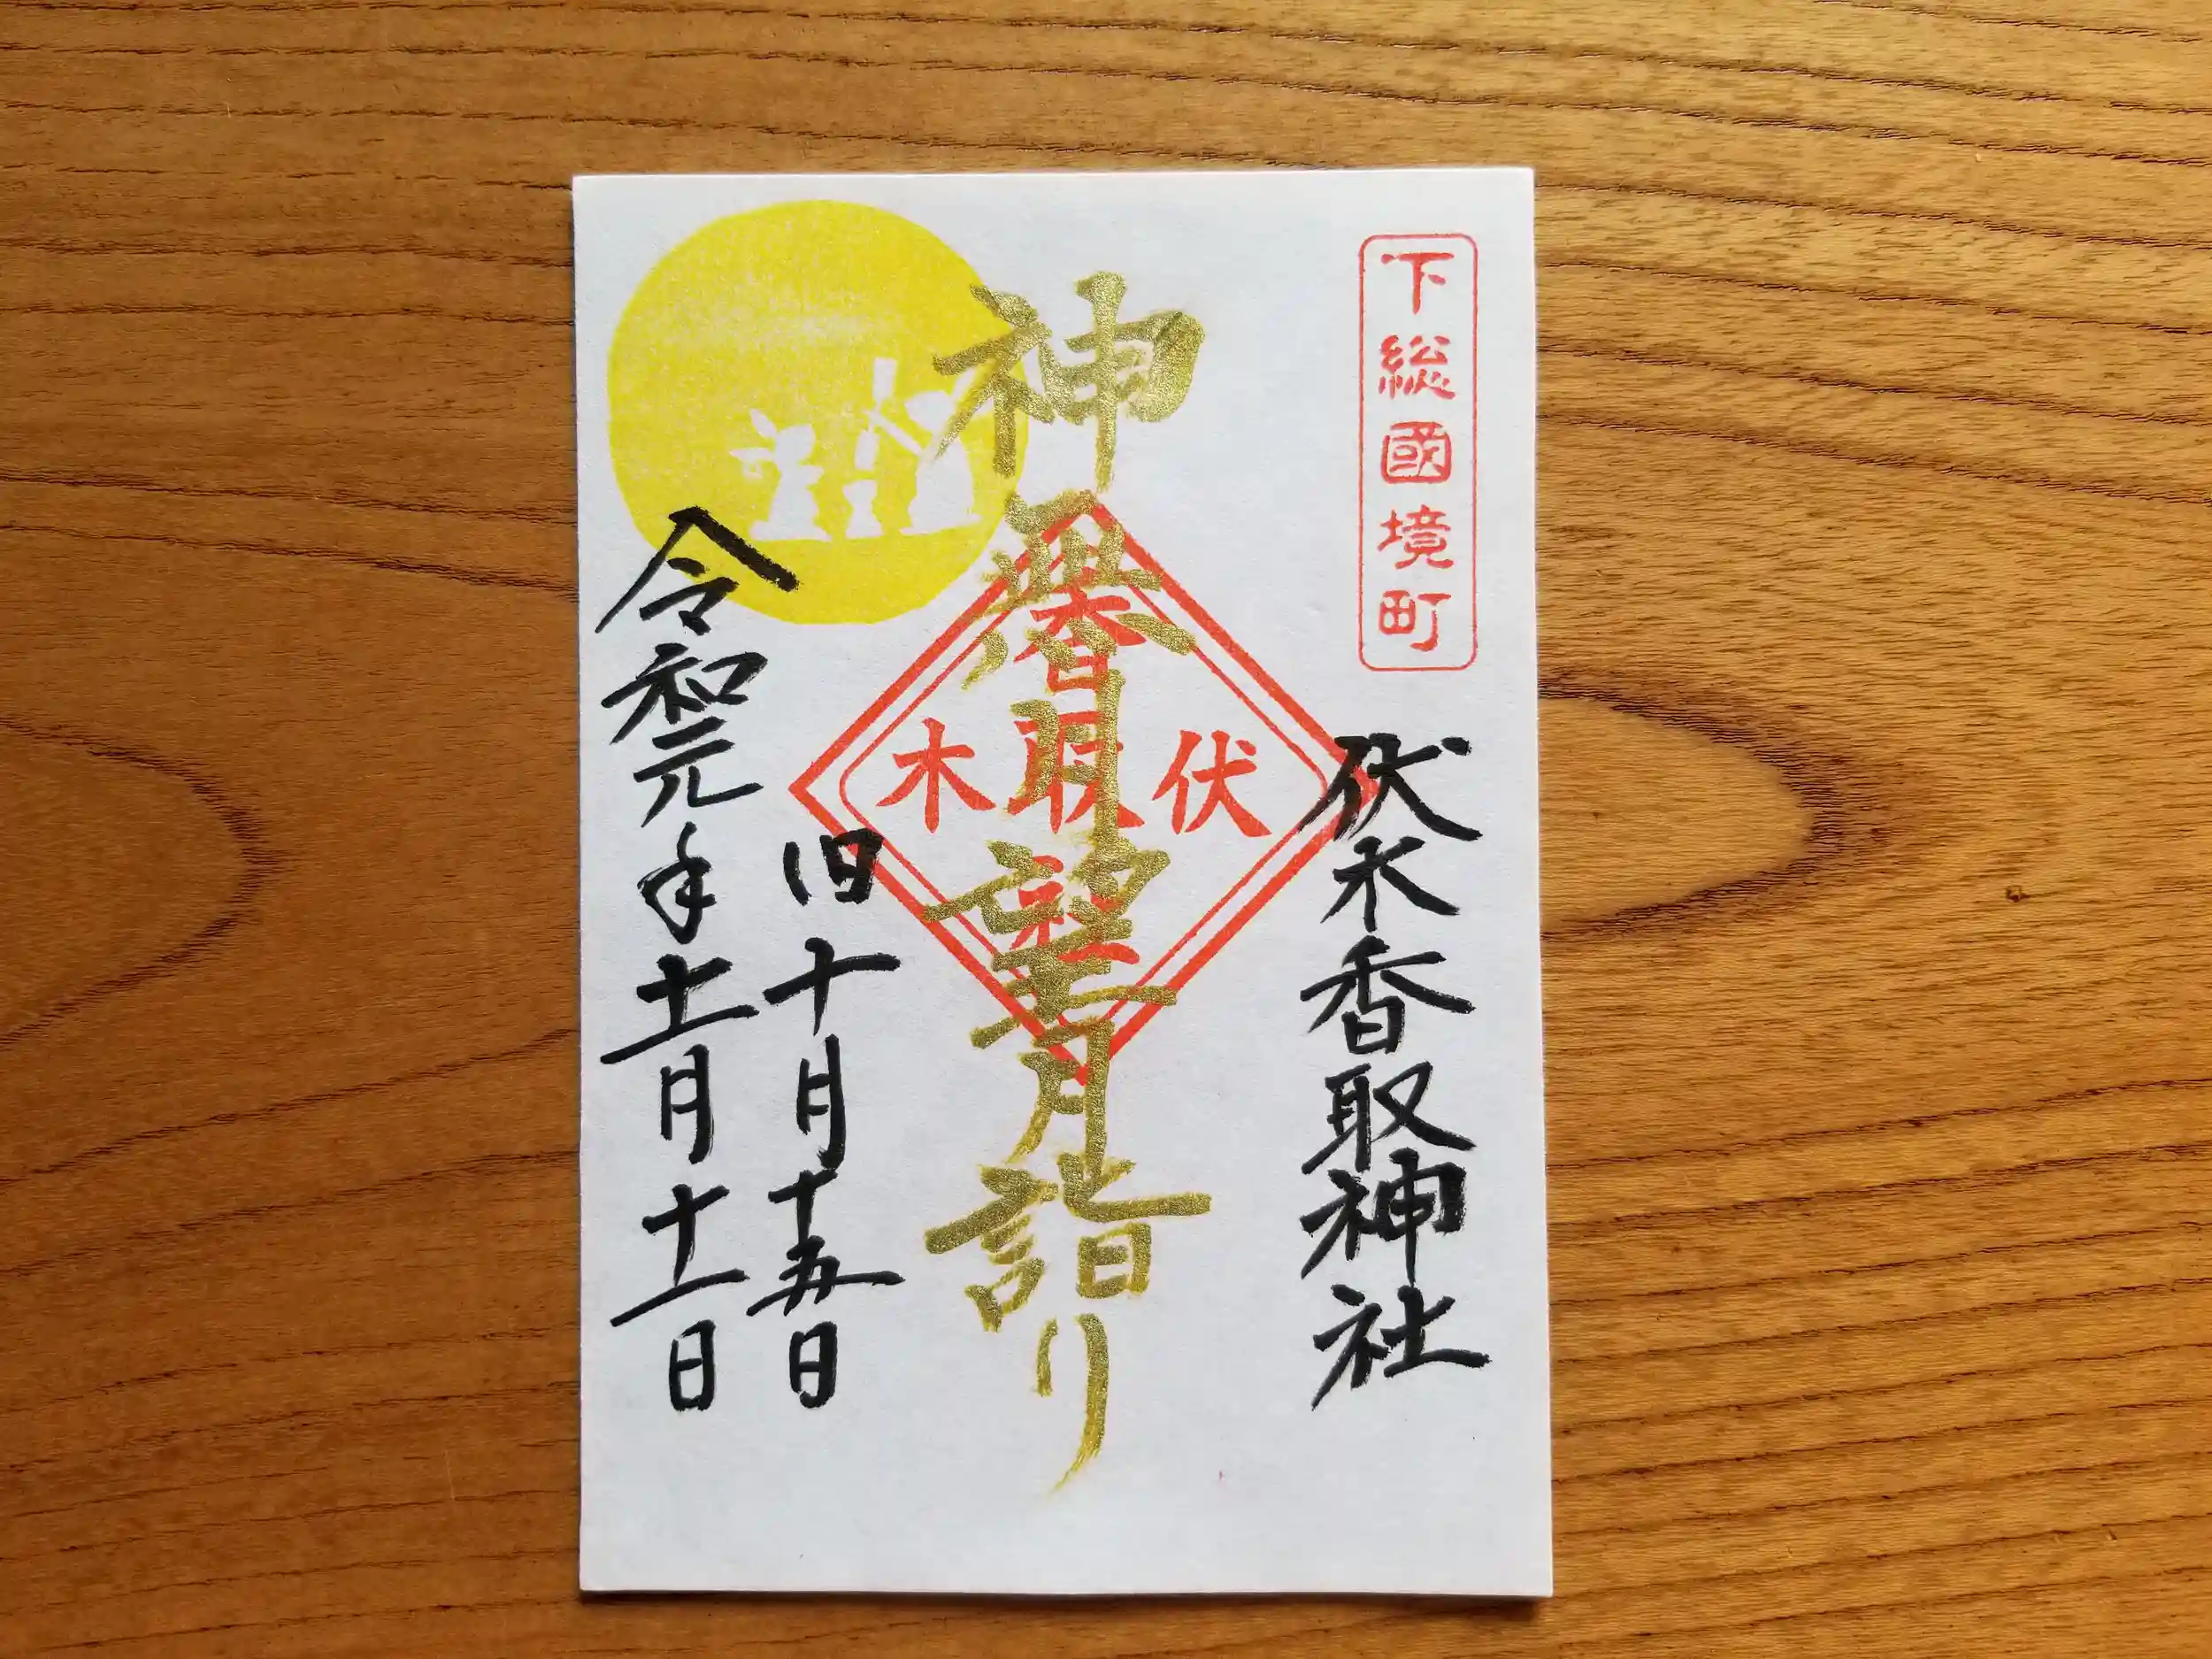 下総國境町
伏木香取神社
神無月望月詣り
伏木
香取社
旧十月十五日
令和元年十一月十一日